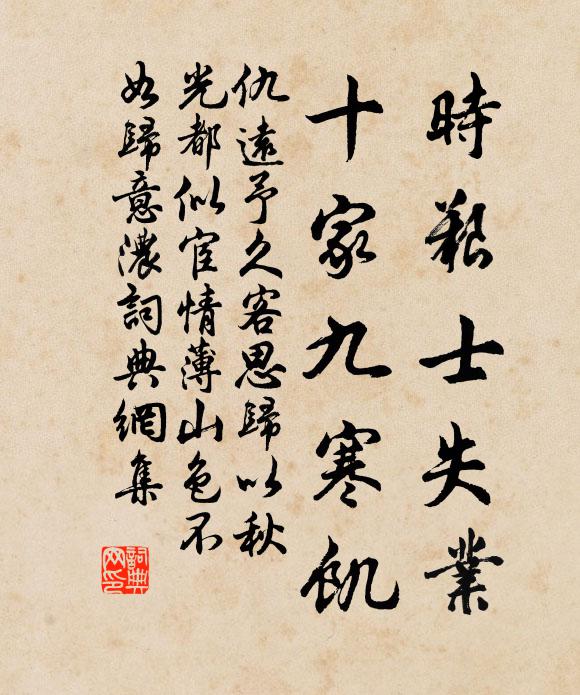 時艱士失業
十家九寒飢
仇遠予久客思歸以秋
光都似宦情薄山色不
如歸意濃詞典網集
詞典网印